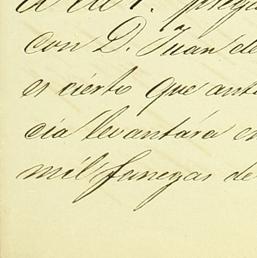 con D. Juan de
es cierto que ant
cia levantára e
mil fanegas de